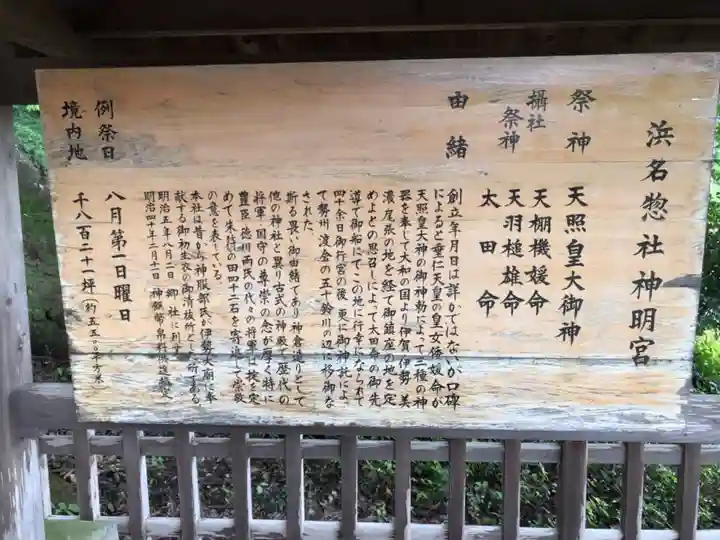 浜名惣社神明宮
祭神 天照皇大御神
攝社 天棚機媛命
祭神 天羽槌雄命
太田命
由緒
創立年月日は詳かではないが口碑
によると垂仁天皇の皇女倭媛命が
天照皇大神の御神勅によって二種の神
器を奉じて大和の国より伊賀伊勢美
濃尾張の地を経て御鎮座の地を定
めよとの思召によって太田命の御先
導で御船にてこの地に行幸になられて
四十余日御行宮の後更に御神託によ
て勢州渡会の五十鈴川の辺に移御な
された
斯る畏い御由緒であり神倉造りとして
他の神社と異り古式の神殿で歴代の
将軍国守の尊崇の念が厚く特に
豊臣徳川両氏の代々の将軍は
めて朱封の田四十二石を寄進して崇敬
の意を表している
本社は昔から神服部氏が伊勢大廟に奉
献する御初生衣の御清祓所として
明治五年八月一日郷社に列す
明治四十年三月十一日神饌幣帛料供進
例祭日 八月第一日曜日
境内地 千八百二十一坪(約五五〇〇平方米